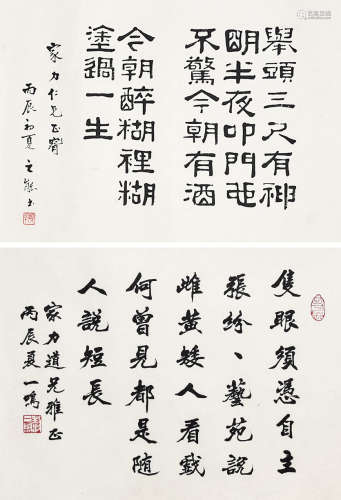 舉頭三尺有神
明半夜叩門也
不驚今朝有酒
今朝醉糊裡糊
塗過一生
家力仁兄正
丙辰初夏之
隻眼須憑自主
張紛、藝苑說
雌黃矮人看戲
何曾見都是隨
人說短長
家力道兄雅正
丙辰夏一鳴